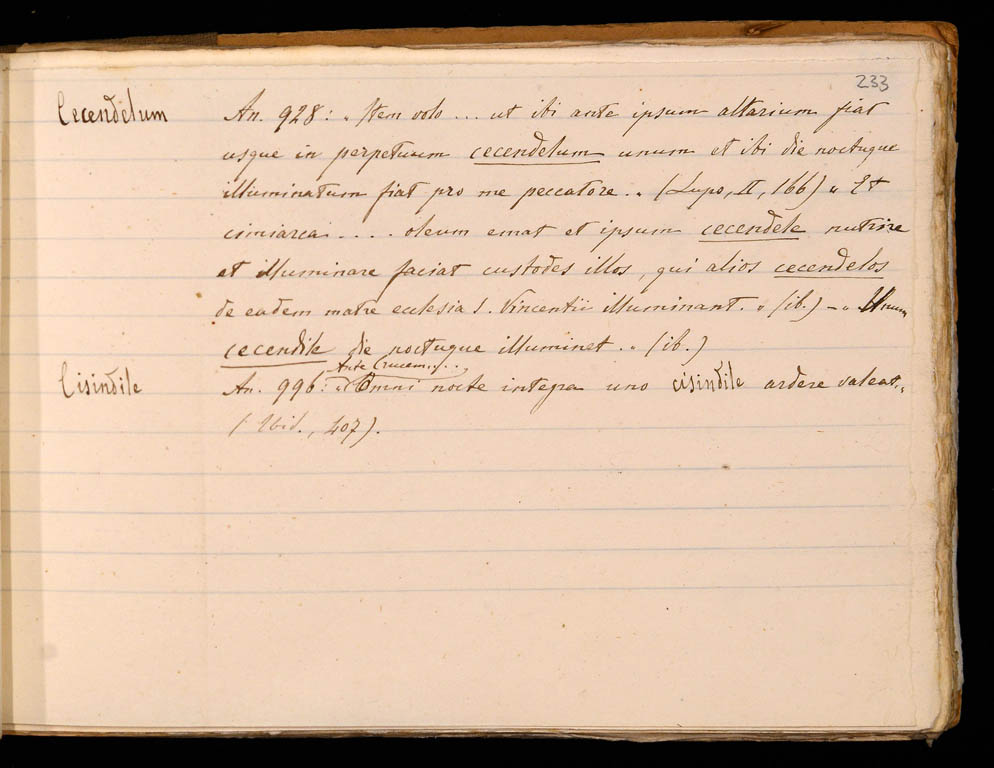 233
Cecendelum An. 928: „ Item volo ... ut ibi ante ipsum altarium fiat
usque in perpetuum cecendelum unum et ibi die noctuque
illuminatum fiat pro me peccatore „ (Lupo, II, 166) „ Et
cimiarca .... oleum emat et ipsum cecendele nutrire
et illuminare faciat custodes illos, qui alios cecendelos
de eadem matre ecclesia S. Vincentii illuminant. „ (ib.) – „ Unum
cecendile die noctuque illuminet. „ (ib.)
Ante Crucem...
Cisindile An. 996: „ Omni nocte integra uno cisindile ardere valeat „
(Ibid., 407).